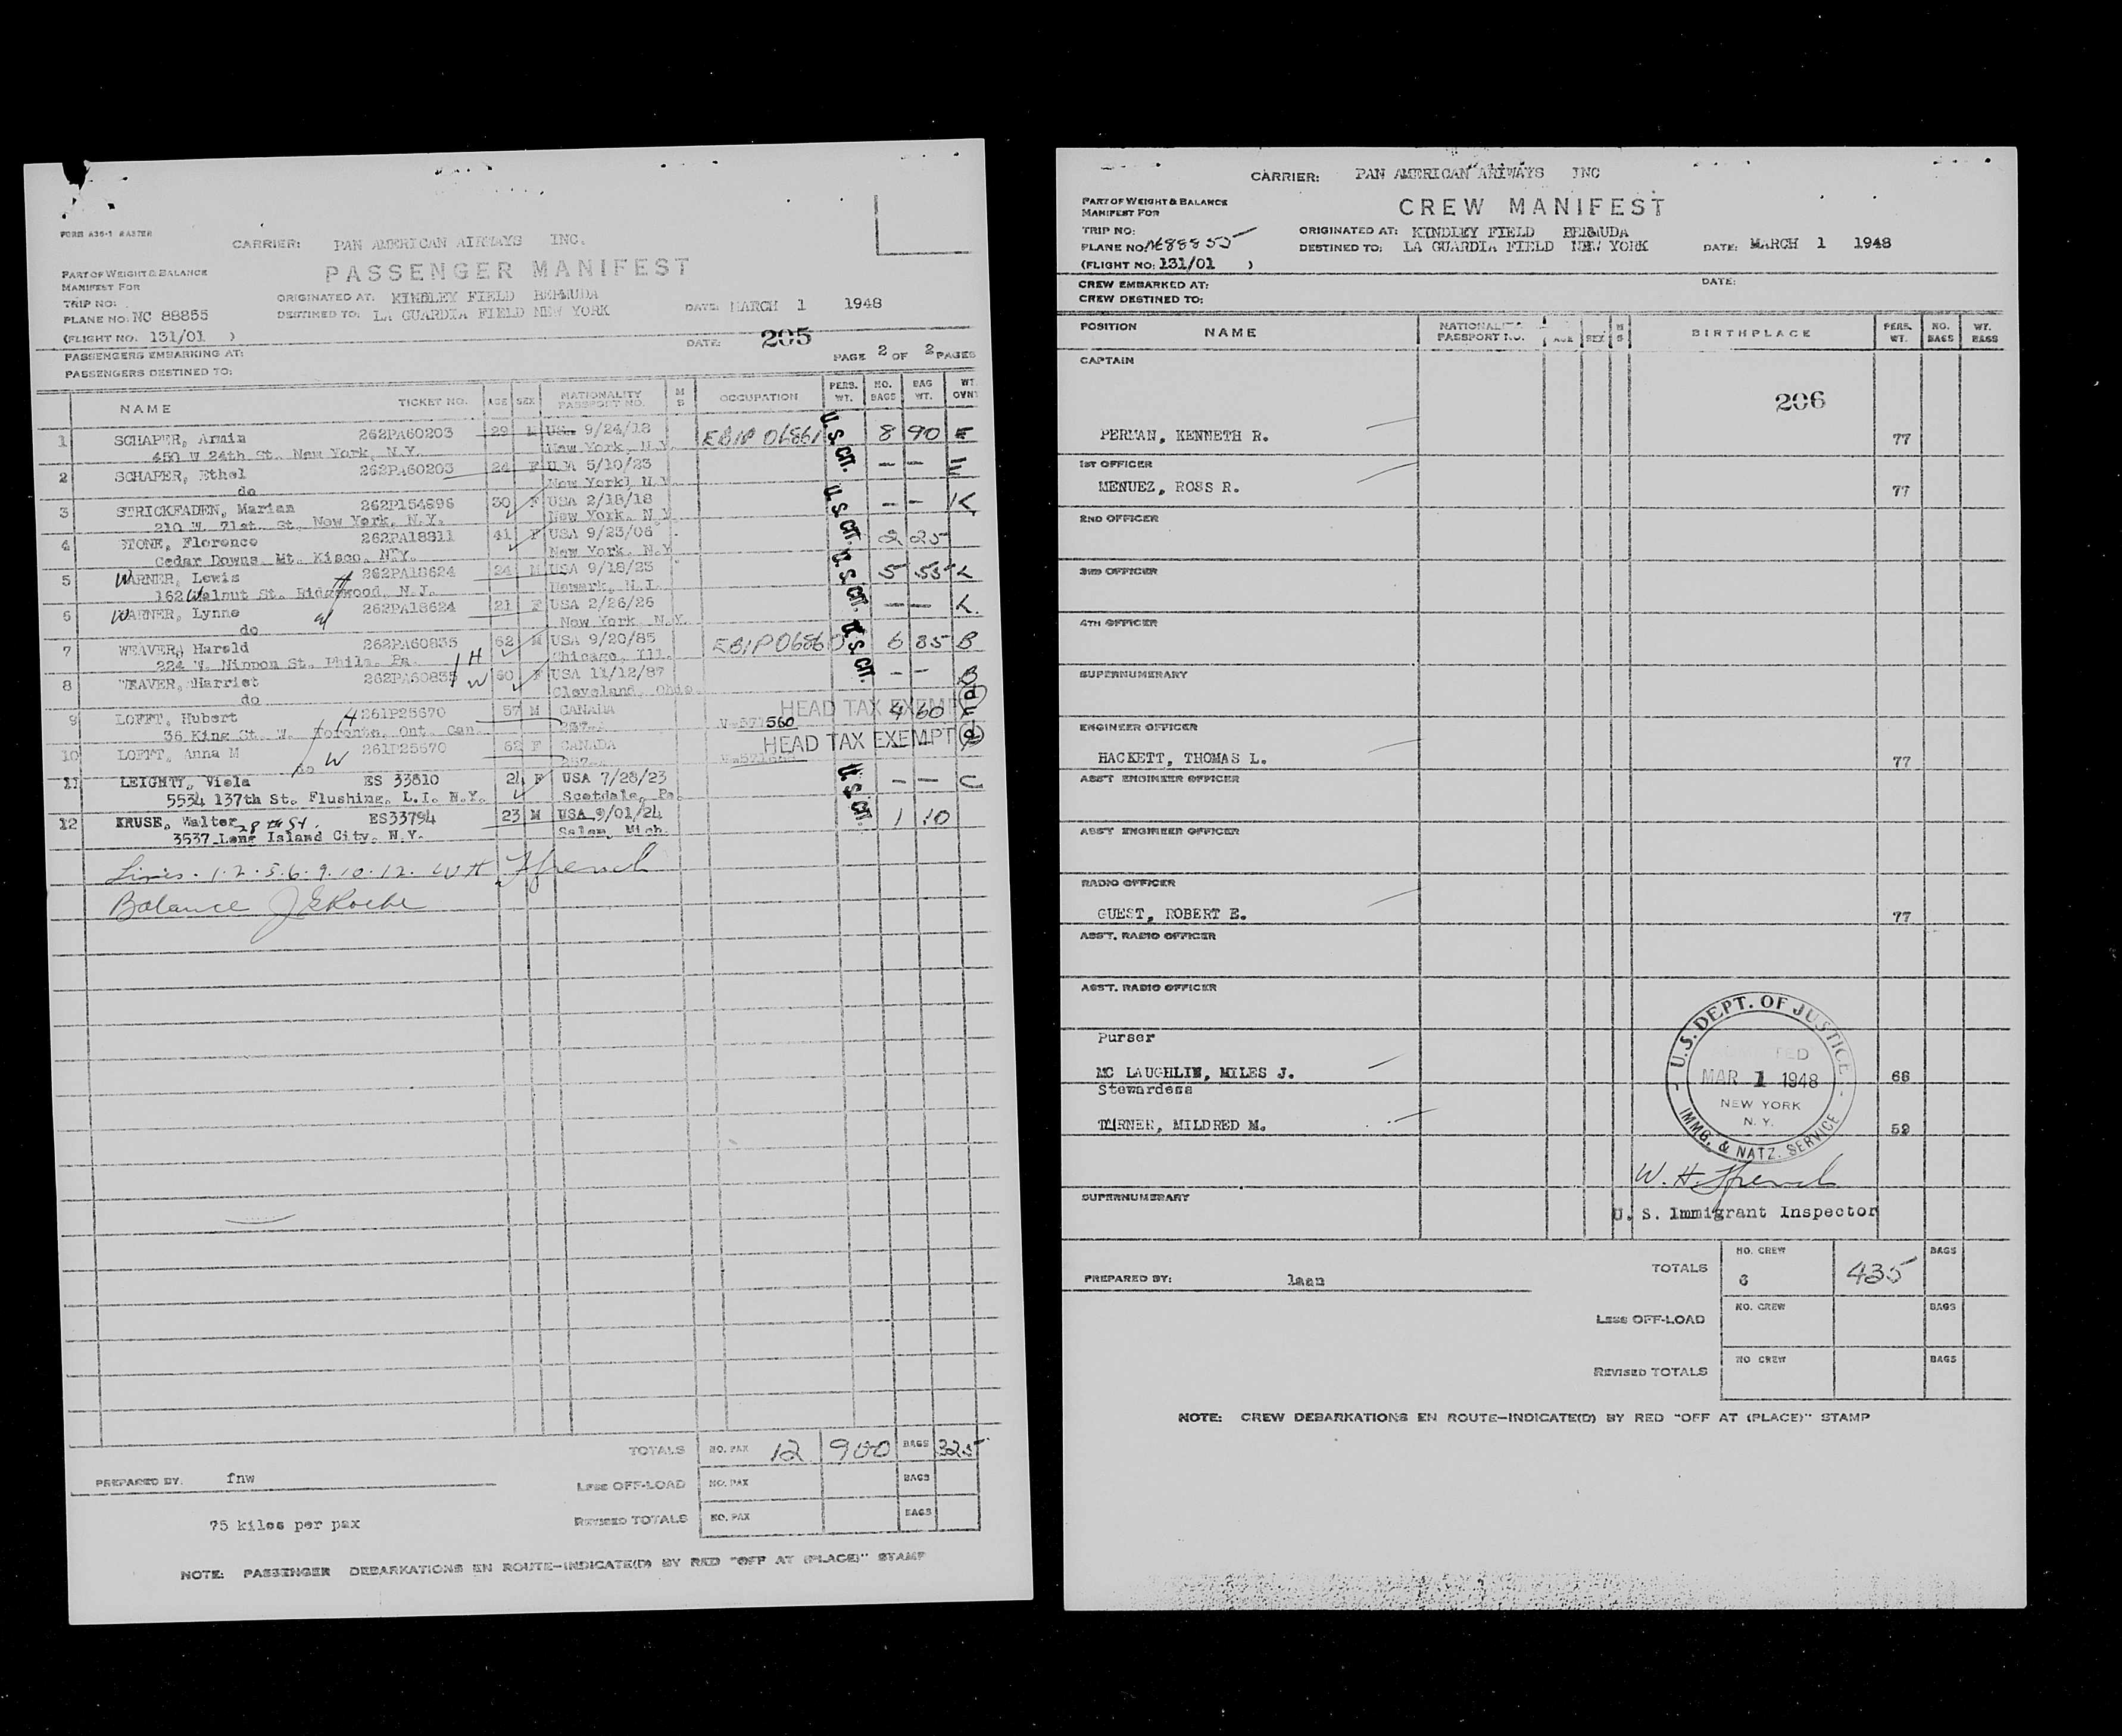 FORM A35-1 MASTER
CARRIER: PAN AMERICAN AIRWAYS INC.
PASSENGER MANIFEST
PART OF WEIGHT & BALANCE
MANIFEST FOR
TRIP NO:
PLANE NO: NC 88855
(FLIGHT NO. 131/01 )
ORIGINATED AT: KINDLEY FIELD BERMUDA
DESTINED TO: LA GUARDIA FIELD NEW YORK
DATE: MARCH 1 1948
PASSENGERS EMBARKING AT:
DATE: 205
PAGE 2 OF 2 PAGES
PASSENGERS DESTINED TO:
NAME TICKET NO. AGE SEX NATIONALITY PASSPORT NO. M S OCCUPATION PERS. WT. NO. BAGS BAG WT. WT. OVNT
1 SCHAPER, Armin 262PA60203 29 M USA 9/24/18 EBIP 06861 U.S. CIT. 8 90 E
450 W 24th St. New York, N.Y. New York, N.Y.
2 SCHAPER, Ethel 262PA60203 24 F USA 5/10/23 — — E
do New York, N.Y.
3 STRICKFADEN, Marian 262P154896 30 F USA 2/18/18 U.S. CIT. — — K
210 W. 71st. St. New York, N.Y. New York, N.Y
4 STONE, Florence 262PA18811 41 F USA 9/23/06 2 25
Cedar Downs Mt. Kisco, NLY. New York, N.Y
5 WARNER, Lewis 262PA18624 24 M USA 9/18/23 U.S. CIT. 5 55 L
162 Walnut St. Ridgewood, N.J. H Newark, N.J.
6 WARNER, Lynne 262PA18624 21 F USA 2/26/26 — — L.
do W New York, N.Y.
7 WEAVER, Harold 262PA60835 62 M USA 9/20/85 EBIP 06860 U.S. CIT. 6 85 B
224 W. Nippon St. Phila. Pa. H Chicago, Ill.
8 WEAVER, Harriet 262PA60835 W 60 F USA 11/12/87 — — B
do Cleveland, Ohio
9 LOFFT, Hubert H 261P25670 57 M CANADA HEAD TAX EXEMPT 4 60 F
36 King St. W. Toronto, Ont. Can. 560
10 LOFFT, Anna M W 261P25670 62 F CANADA HEAD TAX EXEMPT
do
11 LEIGHTY, Viola ES 33810 24 F USA 7/28/23 U.S. CIT. — — C
5534 137th St. Flushing, L.I. N.Y. Scotdale, Pa.
12 KRUSE, Walter ES33794 23 M USA 9/01/24 1 10
3537 28 th St. Long Island City, N.Y. Salem, Mich.
Lines. 1.2.5.6.9.10.12. W H Ffrench
Balance J E Roche
TOTALS NO. PAX 12 900 BAGS 325
PREPARED BY: fnw
LESS OFF-LOAD NO. PAX BAGS
75 kilos per pax
REVISED TOTALS NO. PAX BAGS
NOTE: PASSENGER DEBARKATIONS EN ROUTE-INDICATE(D) BY RED "OFF AT (PLACE)" STAMP
CARRIER: PAN AMERICAN ARIWAYS INC
PART OF WEIGHT & BALANCE
MANIFEST FOR
CREW MANIFEST
TRIP NO:
PLANE NO: NC88855
(FLIGHT NO: 131/01 )
ORIGINATED AT: KINDLEY FIELD BERMUDA
DESTINED TO: LA GUARDIA FIELD NEW YORK
DATE: MARCH 1 1948
CREW EMBARKED AT:
DATE:
CREW DESTINED TO:
POSITION NAME NATIONALITY PASSPORT NO. AGE SEX M S BIRTHPLACE PERS. WT. NO. BAGS WT. BAGS
CAPTAIN
206
PERMAN, KENNETH R. 77
1ST OFFICER
MENUEZ, ROSS R. 77
2ND OFFICER
3RD OFFICER
4TH OFFICER
SUPERNUMERARY
ENGINEER OFFICER
HACKETT, THOMAS L. 77
ASS'T ENGINEER OFFICER
ASS'T ENGINEER OFFICER
RADIO OFFICER
GUEST, ROBERT E. 77
ASS'T. RADIO OFFICER
ASS'T. RADIO OFFICER
Purser
MC LAUGHLIN, MILES J. 68
Stewardess
TURNER, MILDRED M. 59
U.S. DEPT. OF JUSTICE
ADMITTED
MAR 1 1948
NEW YORK
N. Y.
IMMG. & NATZ. SERVICE
W. H. Ffrench
SUPERNUMERARY
U. S. Immigrant Inspector
PREPARED BY: laan
TOTALS NO. CREW 6 435 BAGS
LESS OFF-LOAD NO. CREW BAGS
REVISED TOTALS NO CREW BAGS
NOTE: CREW DEBARKATIONS EN ROUTE-INDICATE(D) BY RED "OFF AT (PLACE)" STAMP